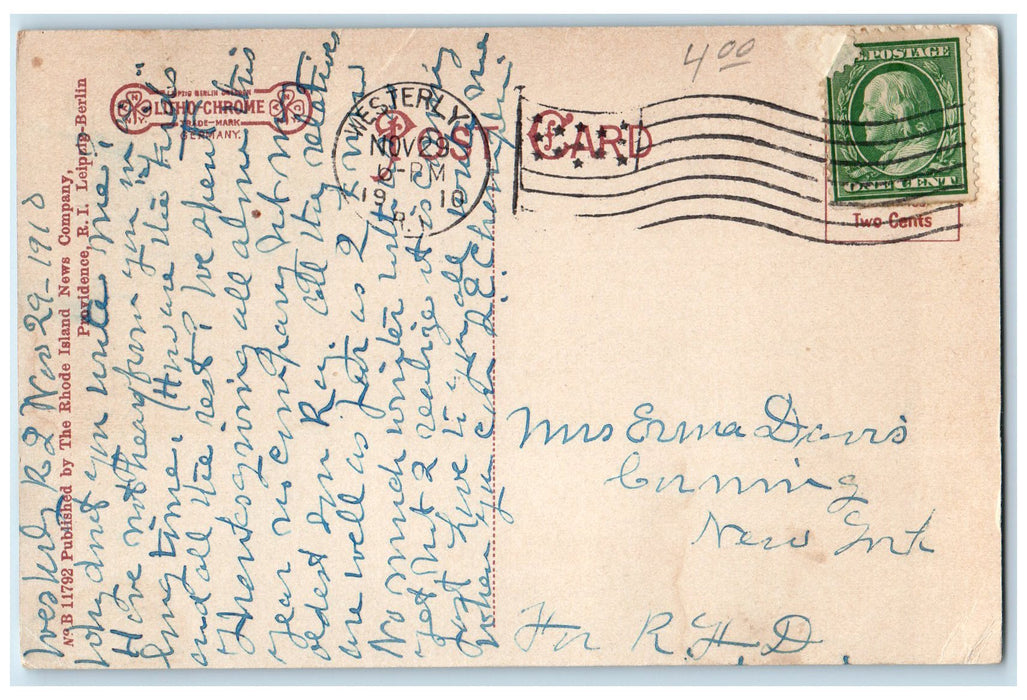 4 00
U.S. POSTAGE
ONE CENT
Two Cents
WESTERLY
NOV 29
6-PM
1910
R.I.
POST CARD
LEIPZIG BERLIN DRESDEN
LITHO-CHROME
TRADE-MARK
GERMANY.
Nº B 11792 Published by The Rhode Island News Company,
Providence, R. I. Leipzig-Berlin
Westerly R2 Nov 29-1910
Why don't you write me?
Have not heard from you in "
long time. How are the
and all the rest? I've spent
Thanksgiving all alone this
year no company but my
oldest son Ray. All the relatives
are well as far as I know
No much winter
yet but I realize it is coming
just Love to you all from me
When you
Mrs Erma Davis
Corning
New York
For R.H.D.